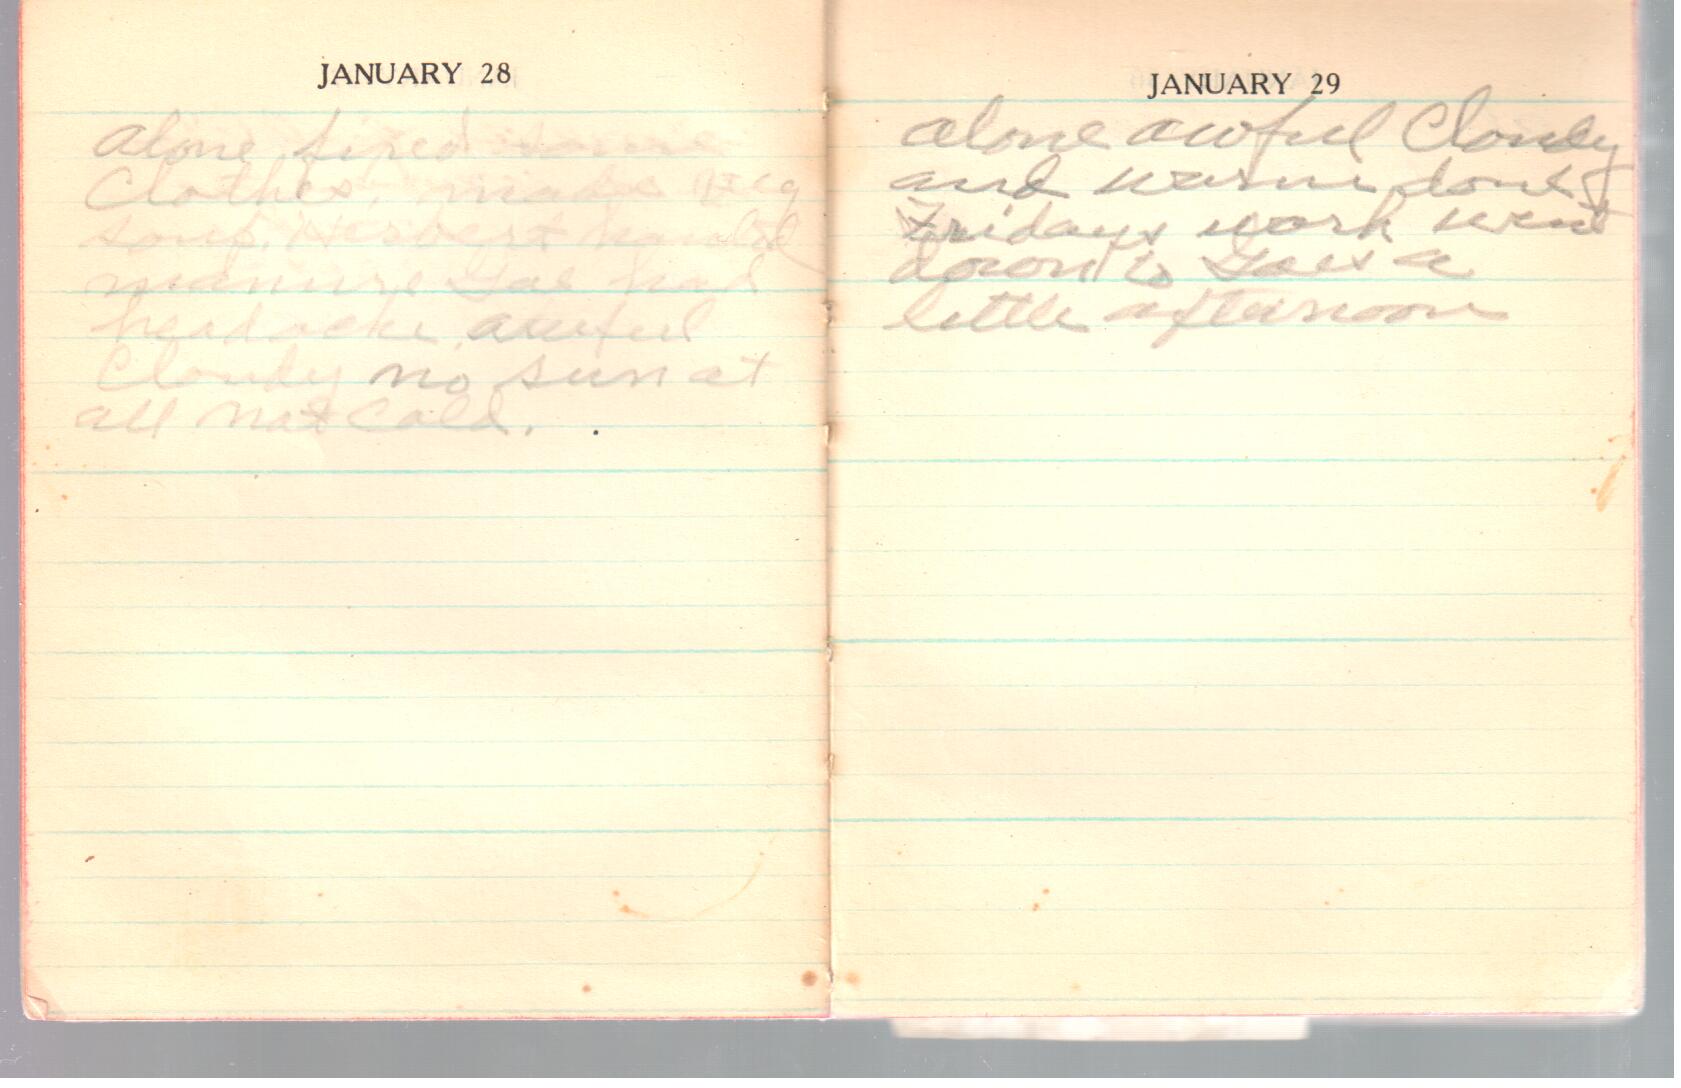 JANUARY 28
alone fixed some
Clothes, made Veg
soup. Herbert hauled
manure Gae had
headache, awful
Cloudy no sun at
all not Cold.
JANUARY 29
alone awful Cloudy
and warm, done
Fridays work went
down to Gaes a
little afternoon